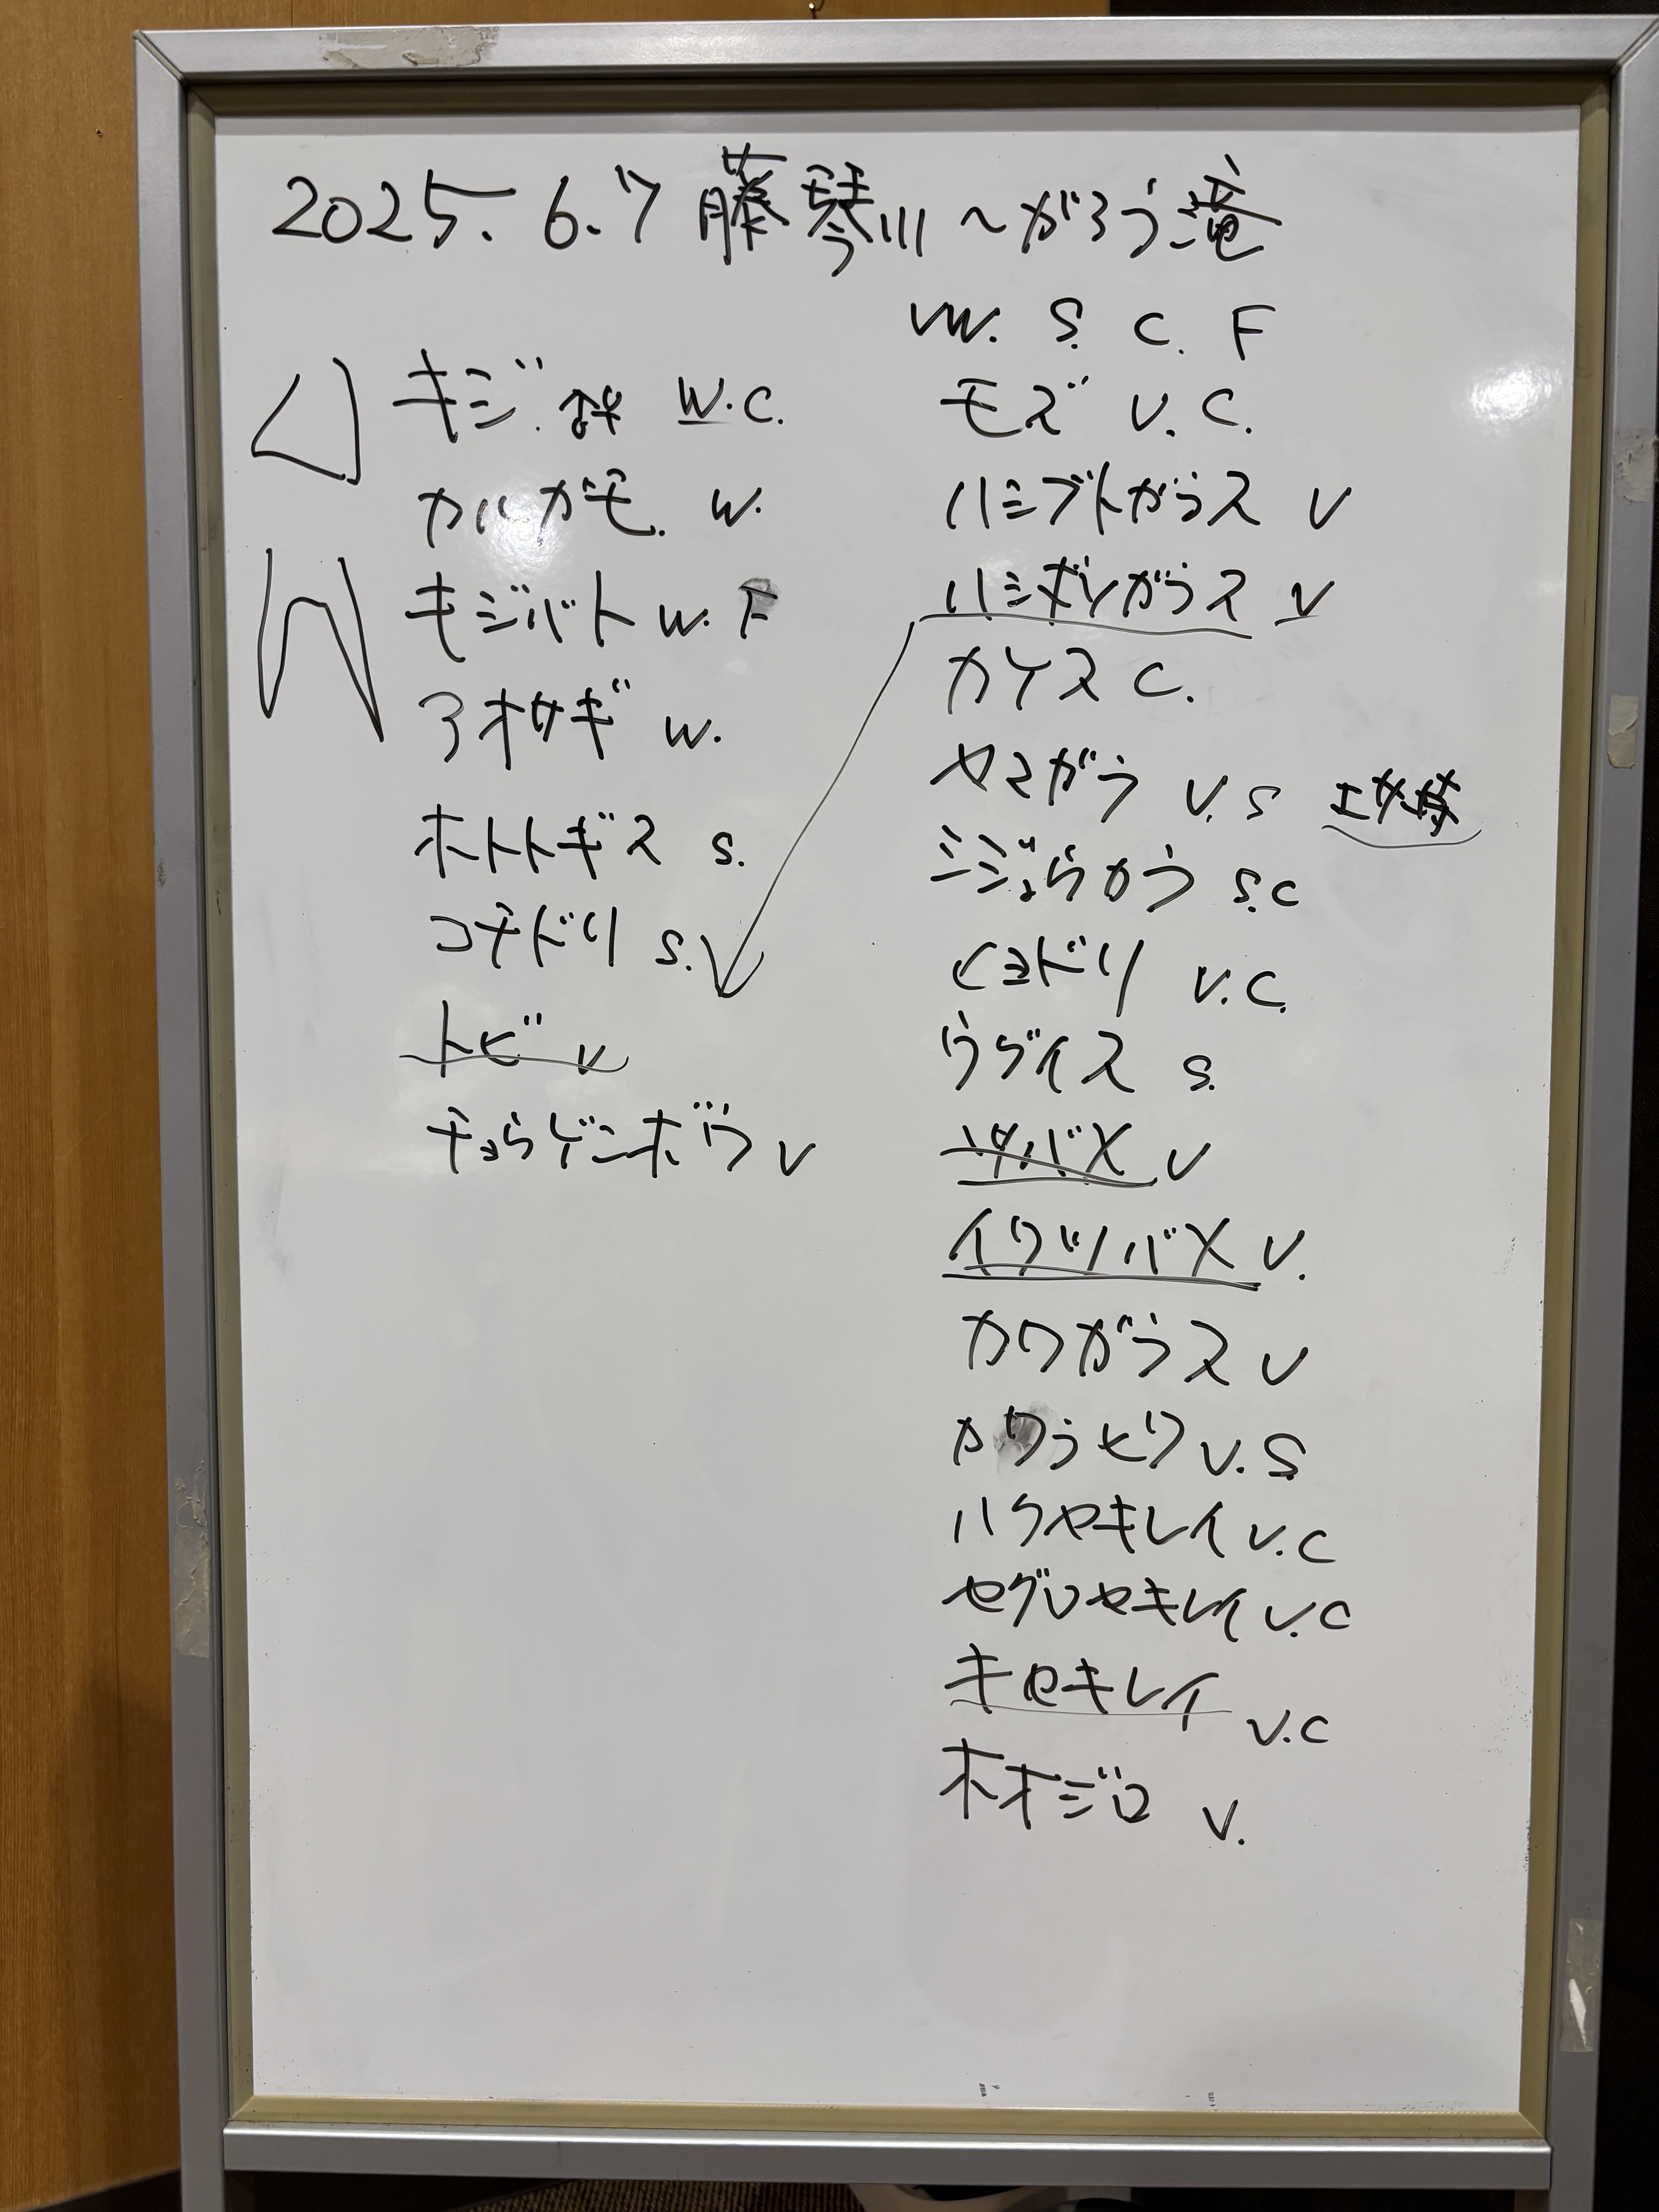 2025. 6.7 藤琴川～がろう滝
VW. S. C. F
キジ. W.C.
カルガモ. W.
キジバト W. F
アオサギ W.
ホトトギス S.
コチドリ S.V
トビ V
チョウゲンボウ V
モズ V. C.
ハシブトガラス V
ハシボソガラス V
カケス C.
ヤマガラ V. S
シジュウカラ S.C
ヒヨドリ V.C.
ウグイス S.
ツバメ V
イワツバメ V.
カワガラス V
カワラヒワ V. S
ハクセキレイ V.C
セグロセキレイ V.C
キセキレイ V.C
ホオジロ V.